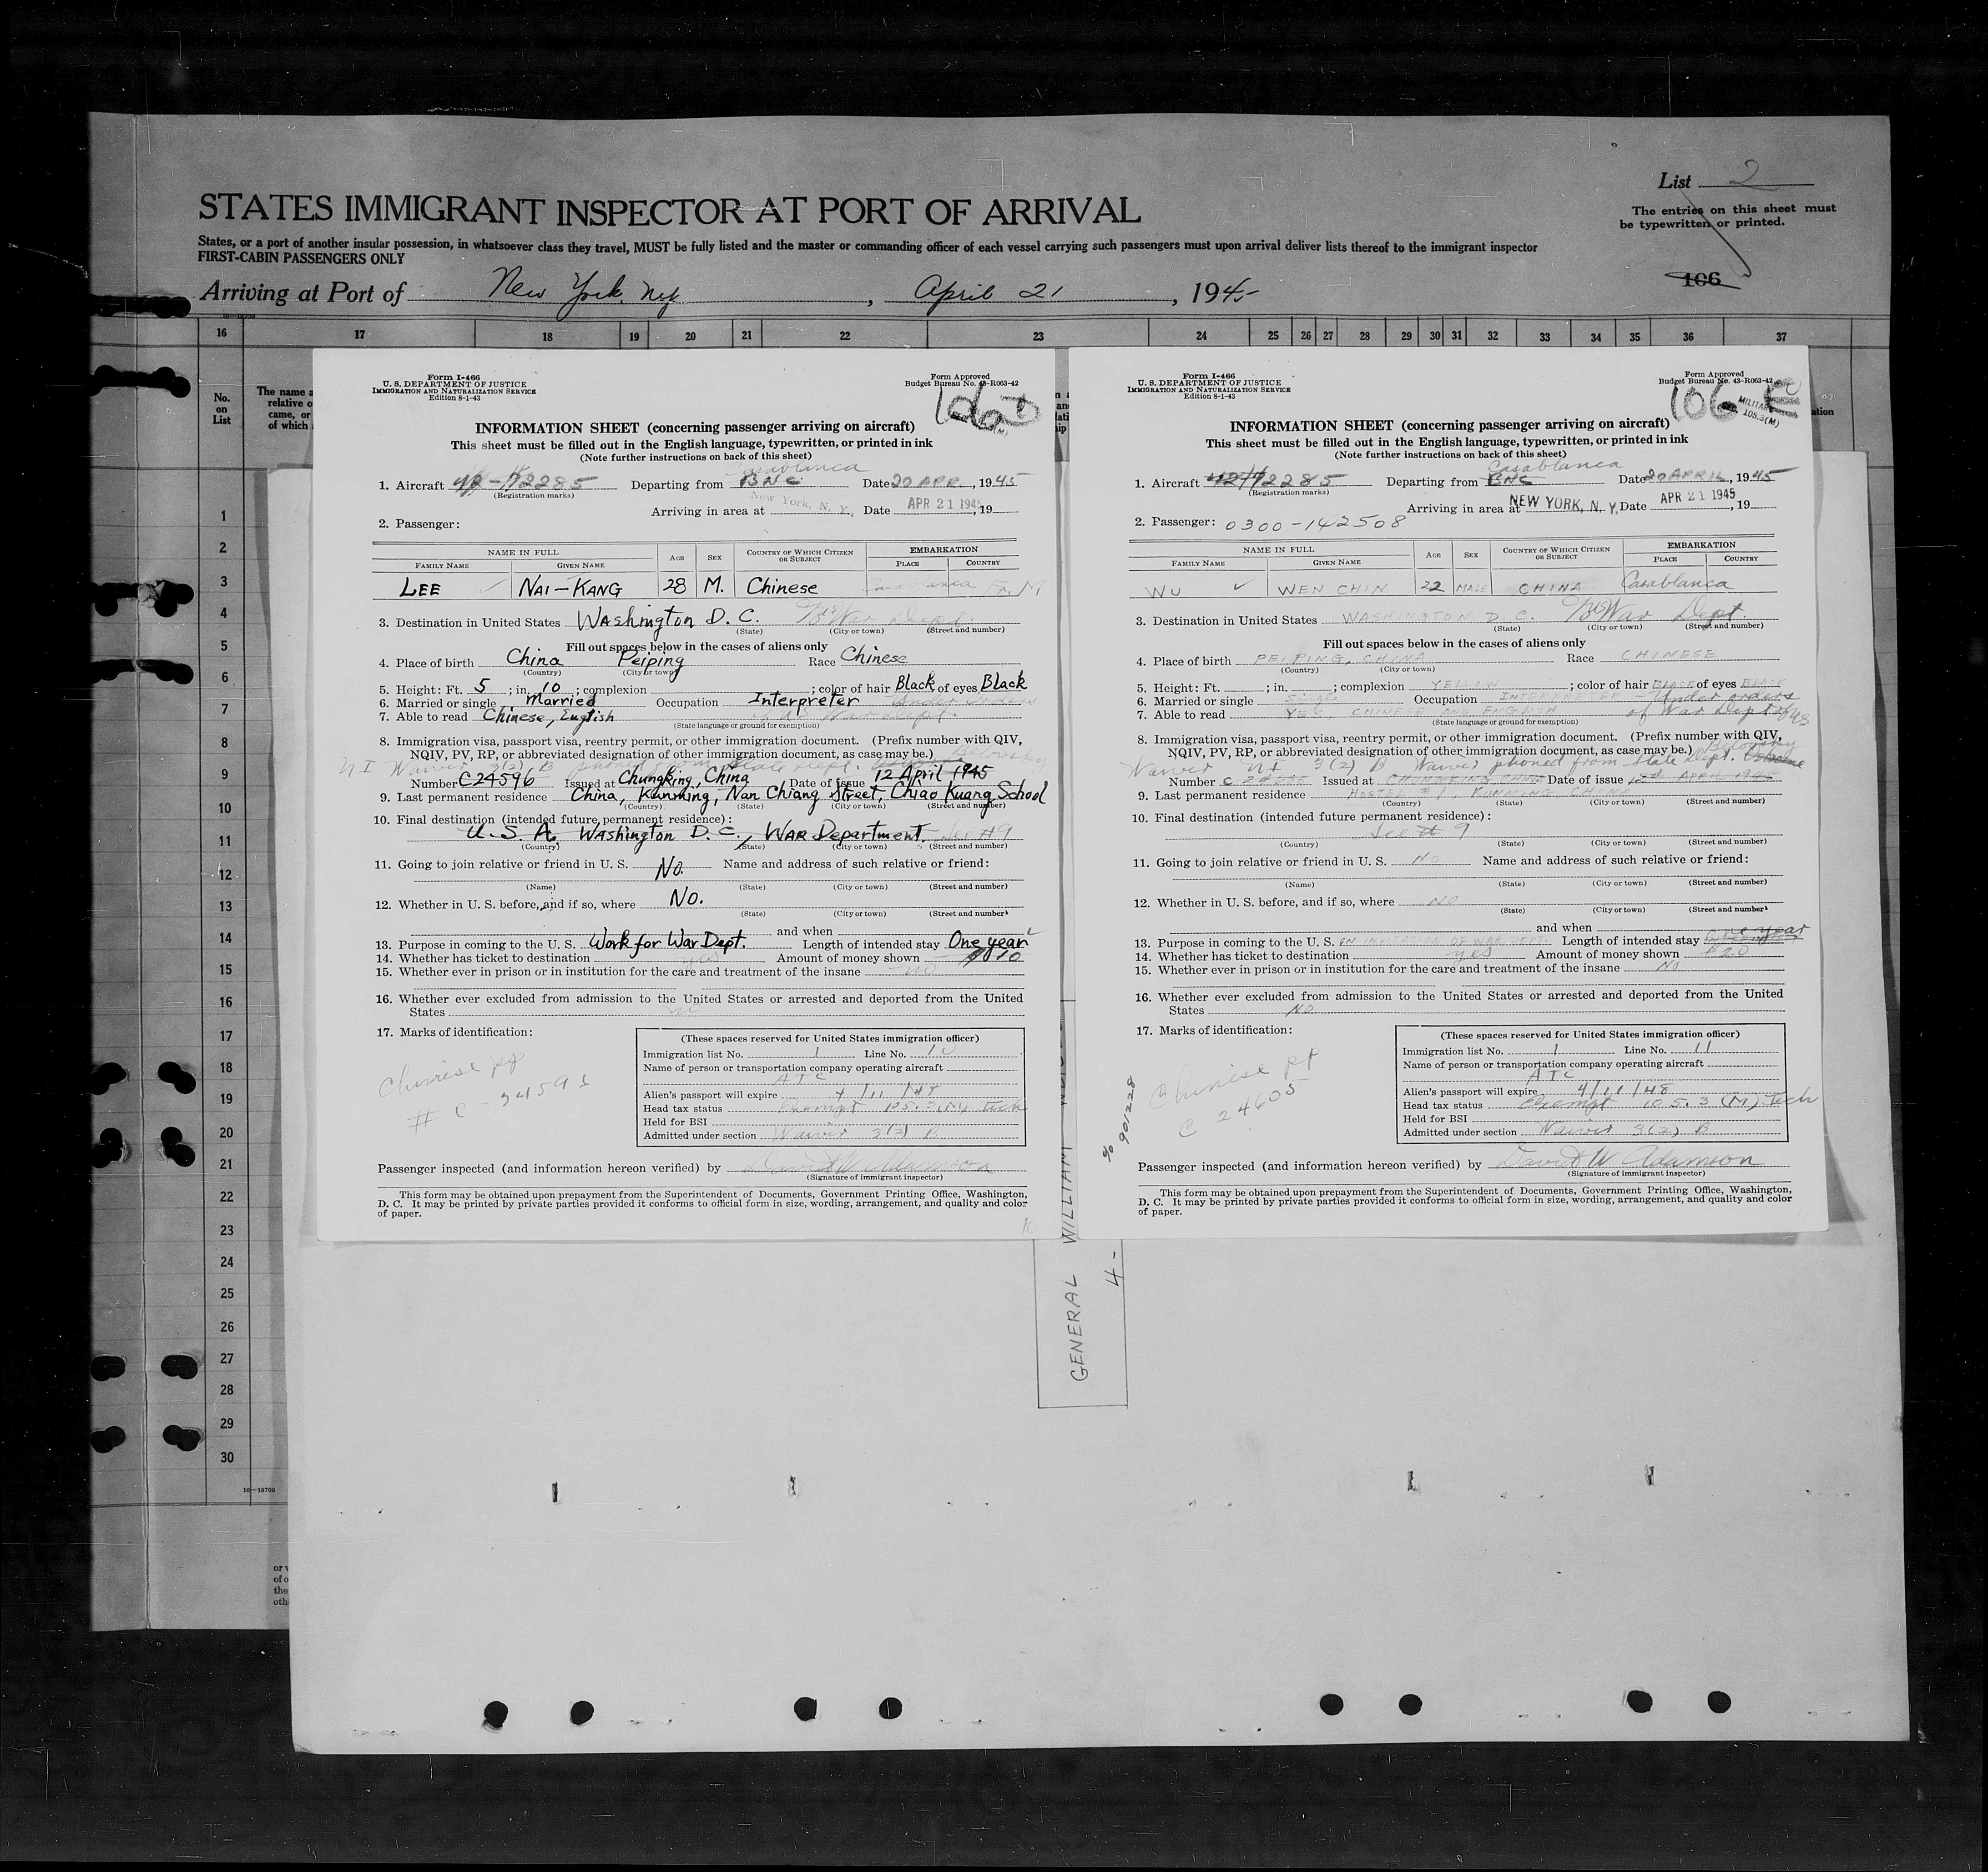 List 2
STATES IMMIGRANT INSPECTOR AT PORT OF ARRIVAL
The entries on this sheet must
be typewritten or printed.
States, or a port of another insular possession, in whatsoever class they travel, MUST be fully listed and the master or commanding officer of each vessel carrying such passengers must upon arrival deliver lists thereof to the immigrant inspector
FIRST-CABIN PASSENGERS ONLY
106
Arriving at Port of New York, , April 21, 1945
16 17 18 19 20 21 22 23 24 25 26 27 28 29 30 31 32 33 34 35 36 37
No.
on
List
The name a
relative o
came, or
of which
1
2
3
4
5
6
7
8
9
10
11
12
13
14
15
16
17
18
19
20
21
22
23
24
25
26
27
28
29
30
16—18709
Form I-466
U. S. DEPARTMENT OF JUSTICE
IMMIGRATION AND NATURALIZATION SERVICE
Edition 8-1-43
Form Approved
Budget Bureau No. 43-R063-42
INFORMATION SHEET (concerning passenger arriving on aircraft)
This sheet must be filled out in the English language, typewritten, or printed in ink
(Note further instructions on back of this sheet)
Casablanca
1. Aircraft 42-72285 Departing from BNC Date 20 APR, 1945
(Registration marks)
Arriving in area at New York, N. Y. Date APR 21 1945, 19
2. Passenger:
NAME IN FULL AGE SEX COUNTRY OF WHICH CITIZEN OR SUBJECT EMBARKATION
FAMILY NAME GIVEN NAME PLACE COUNTRY
LEE NAI-KANG 28 M. Chinese Casablanca Fr. M
3. Destination in United States Washington D. C. War Dept.
(State) (City or town) (Street and number)
Fill out spaces below in the cases of aliens only
4. Place of birth China Peiping Race Chinese
(Country) (City or town)
5. Height: Ft. 5; in. 10; complexion ; color of hair Black of eyes Black
6. Married or single Married Occupation Interpreter Under orders
7. Able to read Chinese, English of US War Dept.
(State language or ground for exemption)
8. Immigration visa, passport visa, reentry permit, or other immigration document. (Prefix number with QIV,
NQIV, PV, RP, or abbreviated designation of other immigration document, as case may be.) Belovsky
NI Waiver 3(2) B phoned from State Dept.
Number C24596 Issued at Chungking, China Date of issue 12 April 1945
9. Last permanent residence China, Kunming, Nan Chiang Street, Chiao Kuang School
(Country) (State) (City or town) (Street and number)
10. Final destination (intended future permanent residence):
U. S. A. Washington D. C., WAR Department See #9
(Country) (State) (City or town) (Street and number)
11. Going to join relative or friend in U. S. No. Name and address of such relative or friend:
(Name) (State) (City or town) (Street and number)
12. Whether in U. S. before, and if so, where No.
(State) (City or town) (Street and number)
and when
13. Purpose in coming to the U. S. Work for War Dept. Length of intended stay One year
14. Whether has ticket to destination yes Amount of money shown
15. Whether ever in prison or in institution for the care and treatment of the insane no
16. Whether ever excluded from admission to the United States or arrested and deported from the United
States no
17. Marks of identification:
Chinese pp
(These spaces reserved for United States immigration officer)
Immigration list No. 1 Line No. 10
Name of person or transportation company operating aircraft
ATC
Alien's passport will expire 4/11/48
Head tax status Exempt 105.3(M) Tech
Held for BSI
Admitted under section Waiver 3(2) B
Passenger inspected (and information hereon verified) by David W Adamson
(Signature of immigrant inspector)
This form may be obtained upon prepayment from the Superintendent of Documents, Government Printing Office, Washington,
D. C. It may be printed by private parties provided it conforms to official form in size, wording, arrangement, and quality and color
of paper.
Form I-466
U. S. DEPARTMENT OF JUSTICE
IMMIGRATION AND NATURALIZATION SERVICE
Edition 8-1-43
Form Approved
Budget Bureau No. 43-R063-42
106 E
MILITARY
105.3(M)
INFORMATION SHEET (concerning passenger arriving on aircraft)
This sheet must be filled out in the English language, typewritten, or printed in ink
(Note further instructions on back of this sheet)
Casablanca
1. Aircraft 42-72285 Departing from BNC Date 20 APRIL, 1945
(Registration marks)
Arriving in area at NEW YORK, N. Y. Date APR 21 1945, 19
2. Passenger: 0300-142508
NAME IN FULL AGE SEX COUNTRY OF WHICH CITIZEN OR SUBJECT EMBARKATION
FAMILY NAME GIVEN NAME PLACE COUNTRY
WU WEN CHIN 22 MALE CHINA Casablanca
3. Destination in United States WASHINGTON D. C. War Dept.
(State) (City or town) (Street and number)
Fill out spaces below in the cases of aliens only
4. Place of birth PEIPING, CHINA Race CHINESE
(Country) (City or town)
5. Height: Ft. ; in. ; complexion YELLOW; color of hair BLACK of eyes BLACK
6. Married or single SINGLE Occupation INTERPRETER - Under orders
7. Able to read YES CHINESE AND ENGLISH of War Dept of US
(State language or ground for exemption)
8. Immigration visa, passport visa, reentry permit, or other immigration document. (Prefix number with QIV,
NQIV, PV, RP, or abbreviated designation of other immigration document, as case may be.) Belovsky
Waiver NI 3(2) B Waiver phoned from State Dept.
Number C 24605 Issued at CHUNGKING CHINA Date of issue 12th APRIL 1945
9. Last permanent residence HOSTEL #1, KUNMING CHINA
(Country) (State) (City or town) (Street and number)
10. Final destination (intended future permanent residence):
See # 9
(Country) (State) (City or town) (Street and number)
11. Going to join relative or friend in U. S. NO Name and address of such relative or friend:
(Name) (State) (City or town) (Street and number)
12. Whether in U. S. before, and if so, where NO
(State) (City or town) (Street and number)
and when
13. Purpose in coming to the U. S. OF WAR DEPT. Length of intended stay One year
14. Whether has ticket to destination yes Amount of money shown $20
15. Whether ever in prison or in institution for the care and treatment of the insane NO
16. Whether ever excluded from admission to the United States or arrested and deported from the United
States NO
17. Marks of identification:
Chinese pp
C 24605
(These spaces reserved for United States immigration officer)
Immigration list No. 1 Line No. 11
Name of person or transportation company operating aircraft
ATC
Alien's passport will expire 4/11/48
Head tax status Exempt 105.3 (M) Tech
Held for BSI
Admitted under section Waiver 3(2) B
Passenger inspected (and information hereon verified) by David W Adamson
(Signature of immigrant inspector)
This form may be obtained upon prepayment from the Superintendent of Documents, Government Printing Office, Washington,
D. C. It may be printed by private parties provided it conforms to official form in size, wording, arrangement, and quality and color
of paper.
GENERAL WILLIAM
4-
% 901228